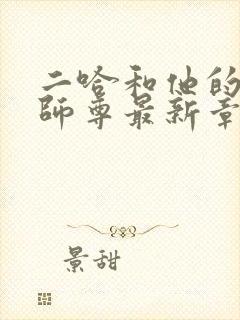 二哈和他的
师尊最新章
景甜